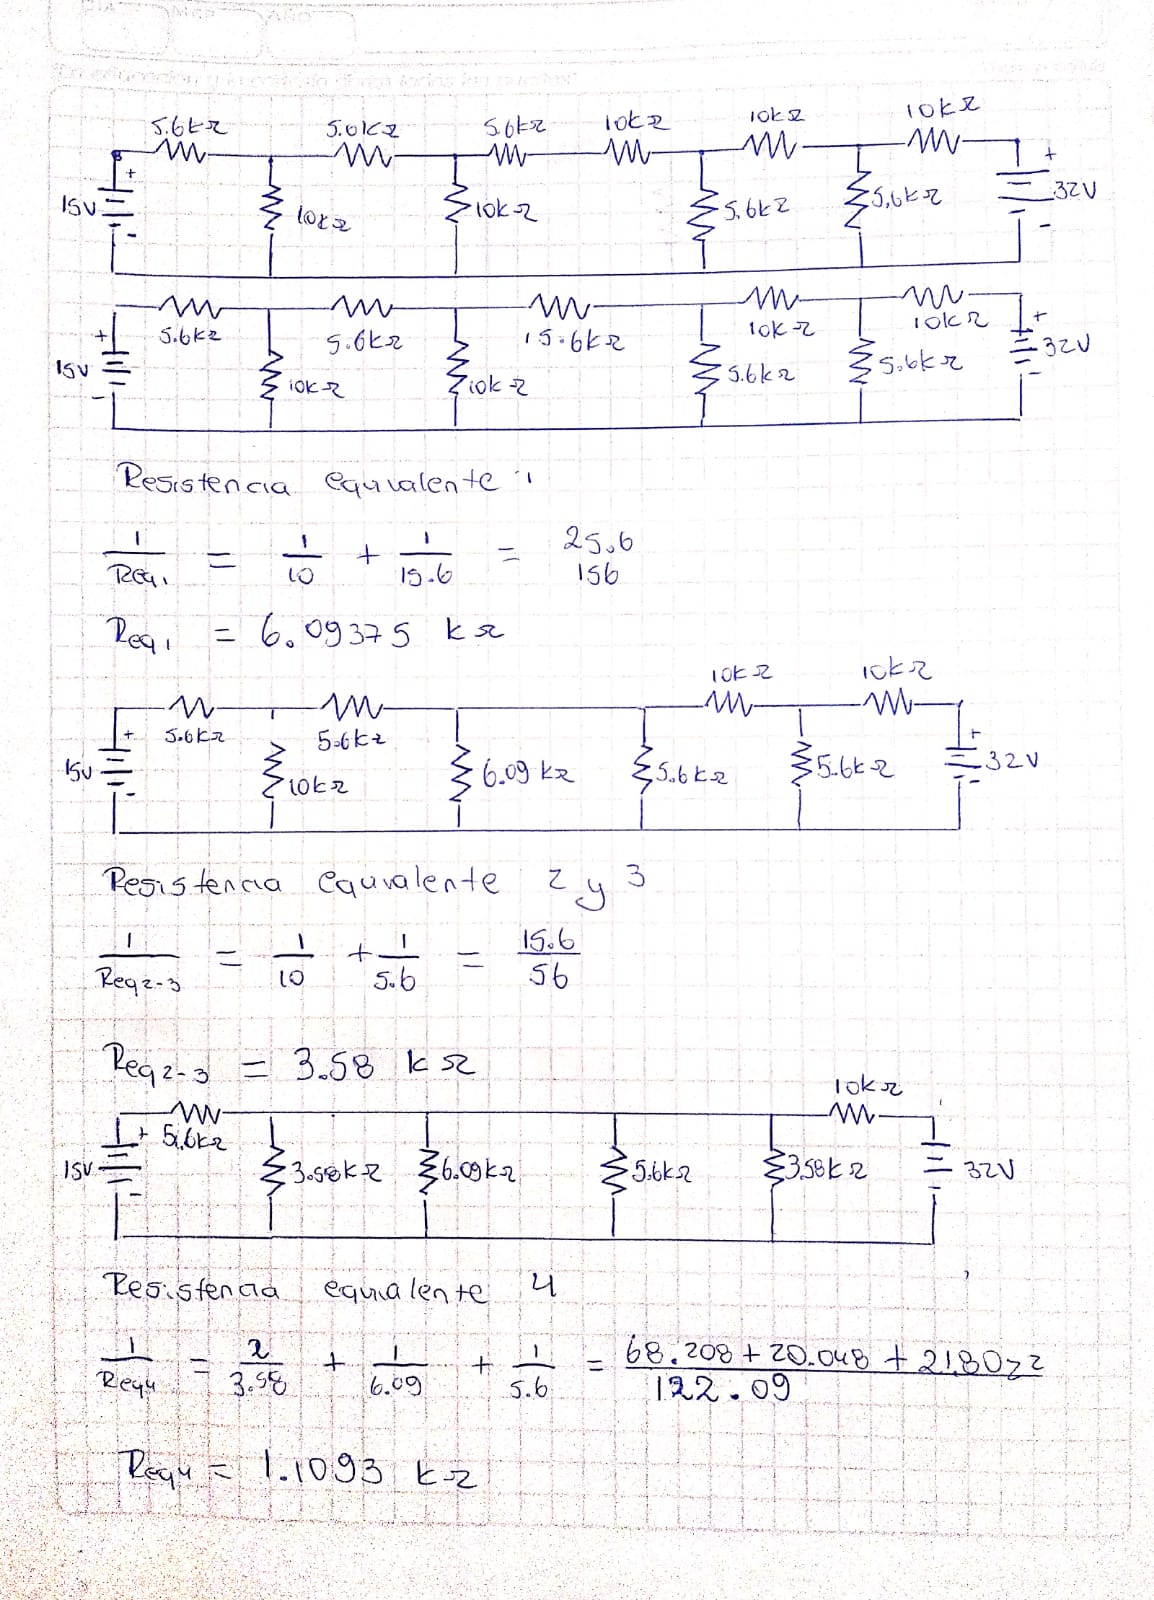 5.6kΩ 5.6kΩ 5.6kΩ 10kΩ 10kΩ 10kΩ
15V + - 10kΩ 10kΩ 5.6kΩ 5,6kΩ + 32V -
5.6kΩ 5.6kΩ 15.6kΩ 10kΩ 10kΩ
15V + - 10kΩ 10kΩ 5.6kΩ 5.6kΩ + 32V
Resistencia equivalente 1
1/Req1 = 1/10 + 1/15.6 = 25.6 156
Req1 = 6.09375 kΩ
10kΩ 10kΩ
5.6kΩ 5.6kΩ
15V + - 10kΩ 6.09 kΩ 5.6kΩ 5.6kΩ + 32V -
Resistencia equivalente 2 y 3
1/Req2-3 = 1/10 + 1/5.6 = 15.6/56
Req2-3 = 3.58 kΩ
10kΩ
5.6kΩ
15V + - 3.58kΩ 6.09kΩ 5.6kΩ 3.58kΩ 32V
Resistencia equivalente 4
1/Req4 = 2/3.58 + 1/6.09 + 1/5.6 = 68.208 + 20.048 + 21.8022/122.09
Req4 = 1.1093 kΩ